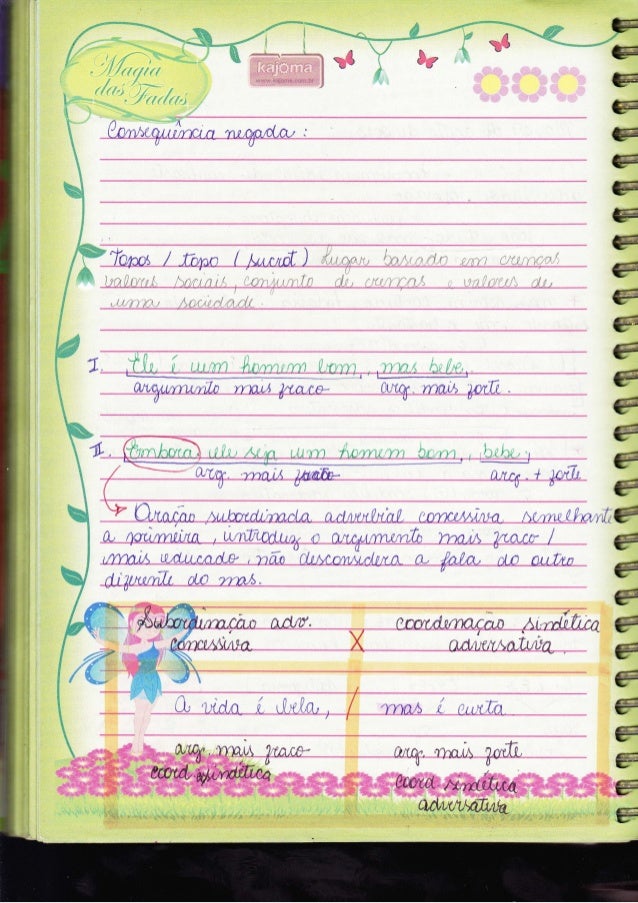 Magia
das Fadas
kajoma
www.kajoma.com.br
Consequência negada :
Topos / topo ( sucrot ) Lugar basiado em crenças
valores sociais, conjunto de crenças e valores de
uma sociedade.
I. Ele é um homem bom, mas bebe.
argumento mais fraco arg. mais forte.
II. Embora ele seja um homem bom, bebe,
arg. mais arg. + forte
Oração subordinada adverbial concessiva semelhante
a primeira, introduz o argumento mais fraco /
mais educado, não desconsidera a fala do outro
diferente do mas.
Subordinação adv. X coordenação sindética
concessiva adversativa.
A vida é bela, / mas é curta
arg. mais fraco arg. mais forte
coord assindética coord sindética
adversativa